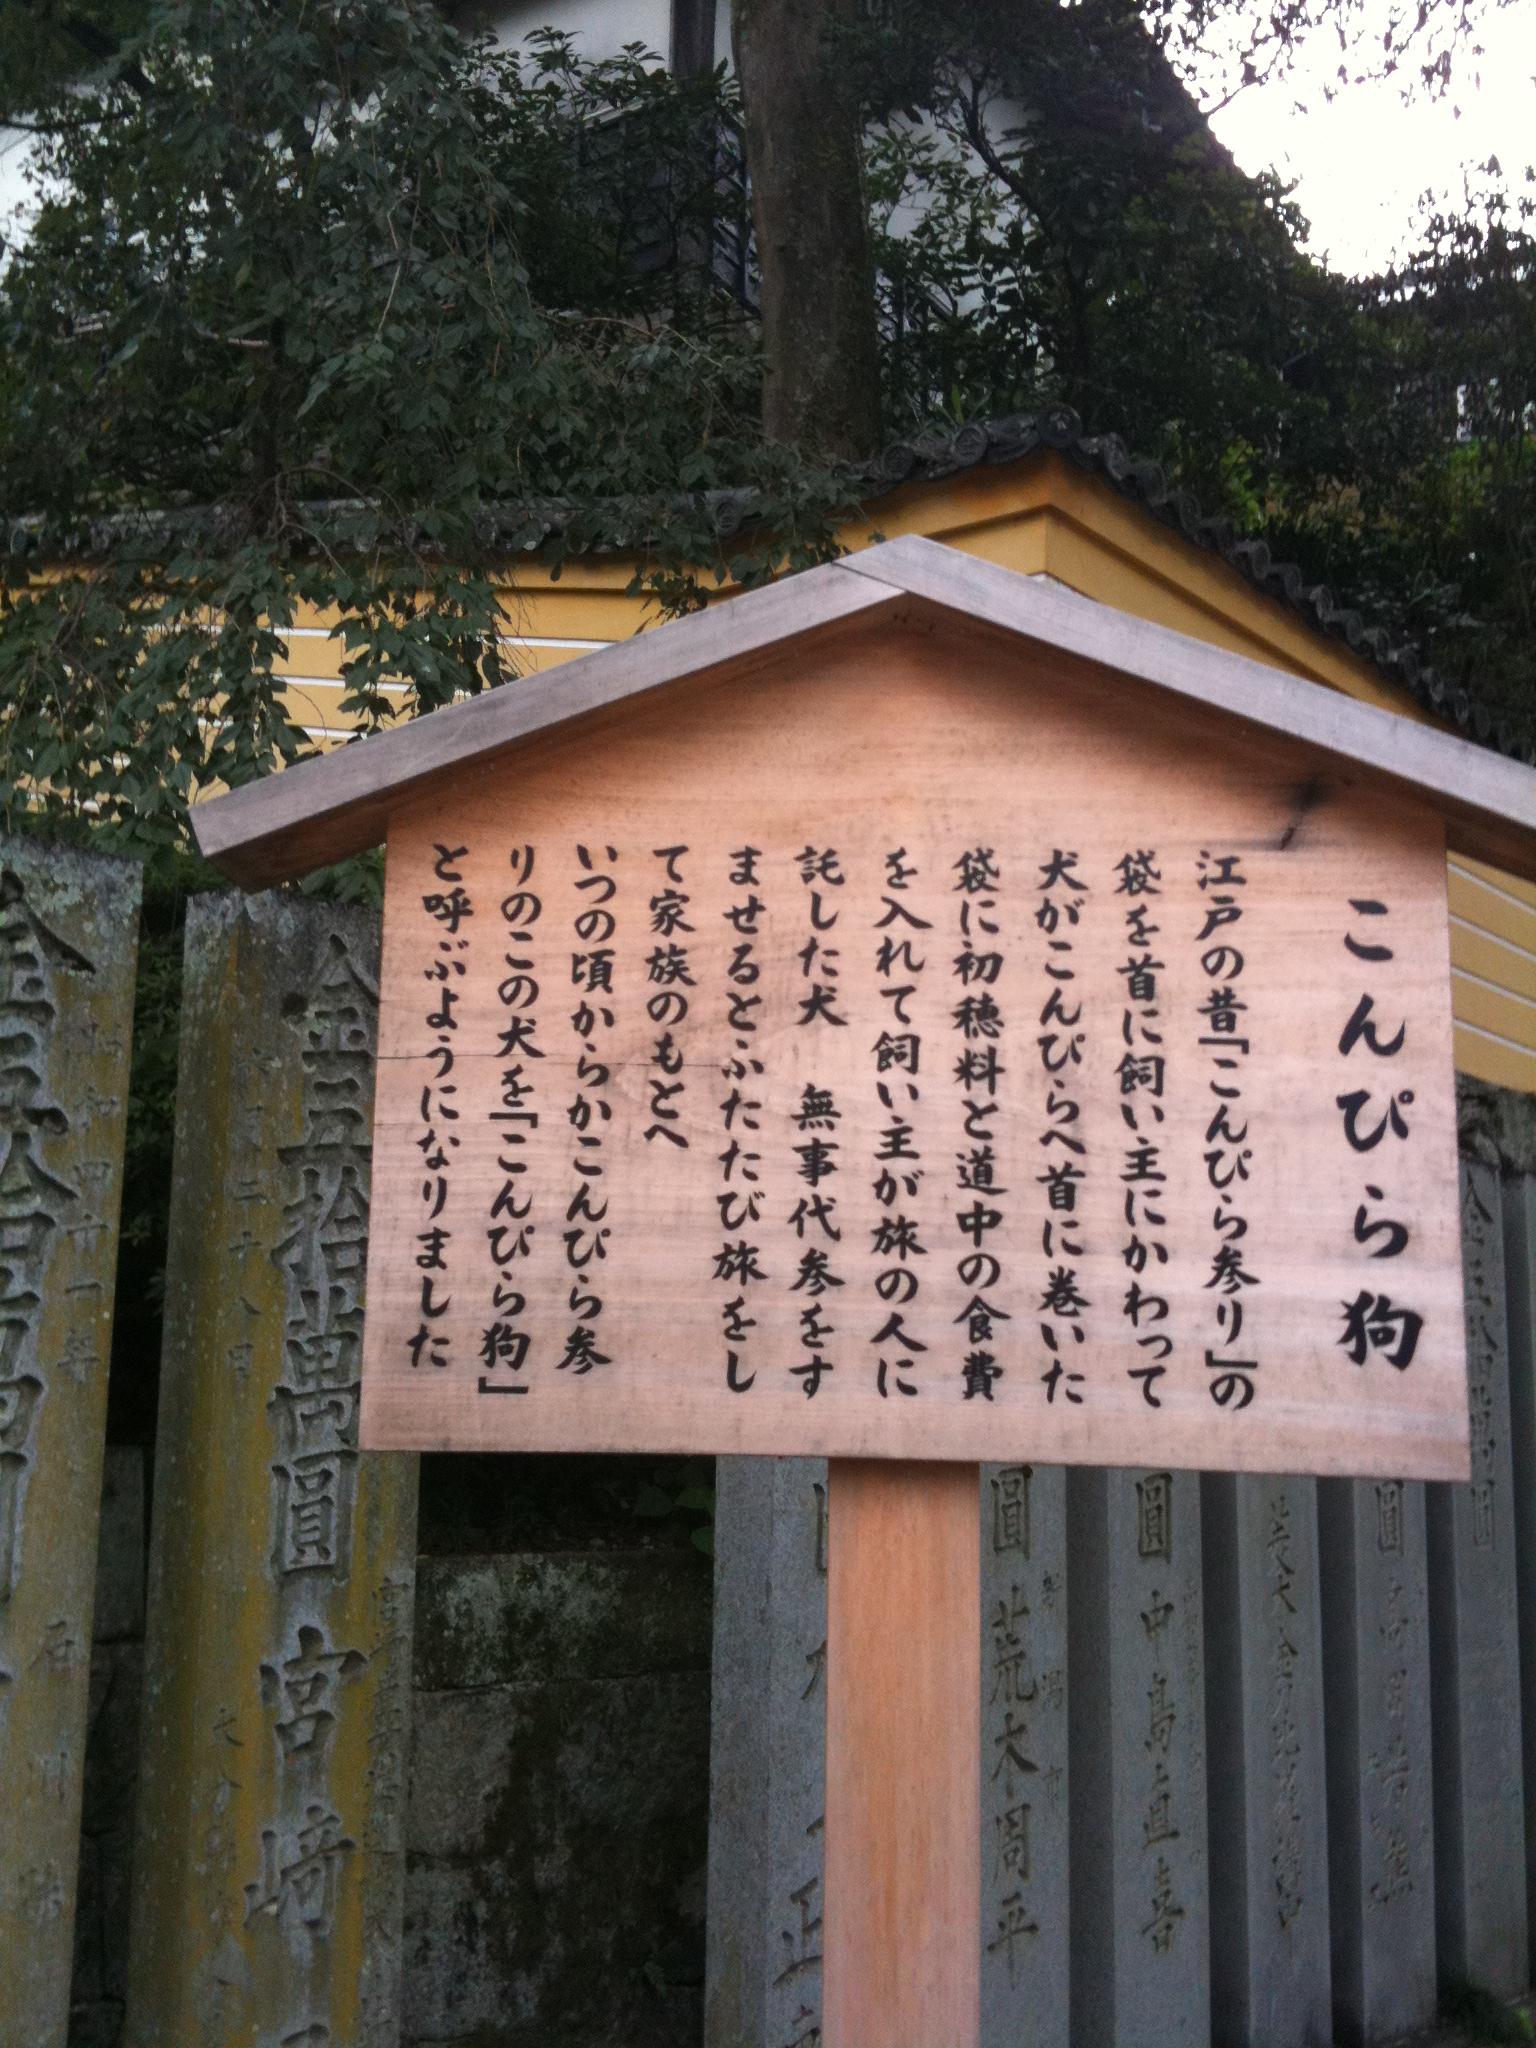 こんぴら狗
江戸の昔「こんぴら参り」の
袋を首に飼い主にかわって
犬がこんぴらへ首に巻いた
袋に初穂料と道中の食費
を入れて飼い主が旅の人に
託した犬 無事代参をす
ませるとふたたび旅をし
て家族のもとへ
いつの頃からかこんぴら参
りのこの犬を「こんぴら狗」
と呼ぶようになりました
圓
圓 中島直喜
圓 荒木周平
金五拾萬圓 宮崎
石川